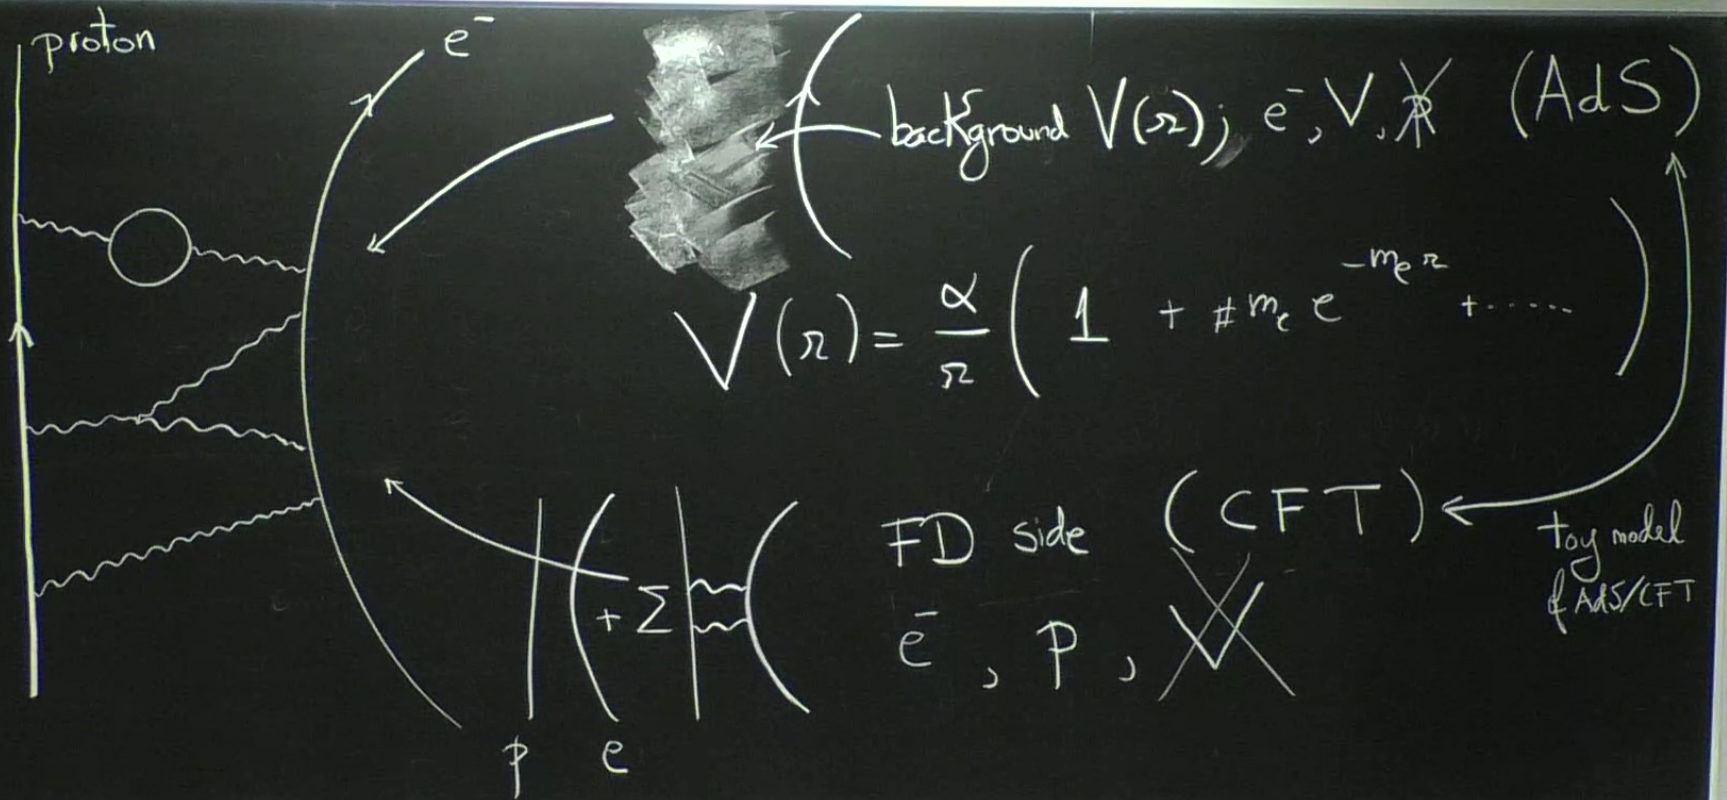 proton
e⁻
background V(r); e⁻, V, P (AdS)
V(r) = α/r ( 1 + # mₑ e^{-mₑ r} + ...... )
FD side (CFT)
toy model
of AdS/CFT
+ Σ
e⁻, p, V
p e